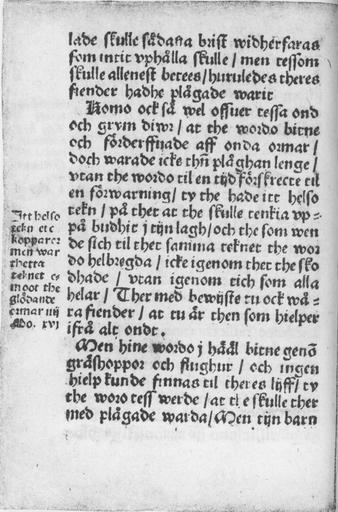 lade skulle sådana brist widherfaras
som intit vphålla skulle / men tessom
skulle allenest betees / huruledes theres
fiender hadhe plågade warit
Komo ock så wel offuer tessa ond
och grym diwr / at the wordo bitne
och förderffuade aff onda ormar /
doch warade icke thñ plåghan lenge /
vtan the wordo til en tijd förskrecte til
en förwarning / ty the hade itt helso
tekn / på thet at the skulle tenkia vp-
på budhit j tijn lagh / och the som wen
de sich til thet samma teknet the wor
do helbregda / icke igenom thet the sko
dhade / vtan igenom tich som alla
helar / Ther med bewijste tu ock wå-
ra fiender / at tu är then som hielper
ifrå alt ondt.
Men hine wordo j hååll bitne genō
gråshoppor och flughur / och ingen
hielp kunde finnas til theres lijff / ty
the woro tess werde / at the skulle ther
med plågade warda / Men tijn barn
Itt helso
tekn etc
kopparor
men war
thetta
teknet e
moot the
glödande
ormar iiij
Mo. xvj